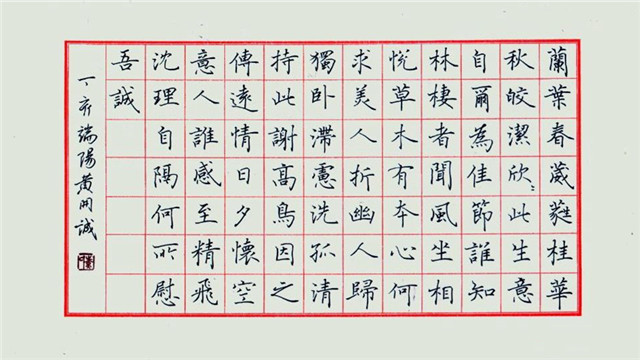 蘭葉春葳蕤桂華
秋皎潔欣〻此生意
自爾為佳節誰知
林棲者聞風坐相
悅草木有夲心何
求美人折幽人歸
獨卧滯慮洗孤清
持此謝高鳥因之
傳遠情日夕懷空
意人誰感至精飛
沈理自隔何所慰
吾誠
丁亥端陽黄開誠